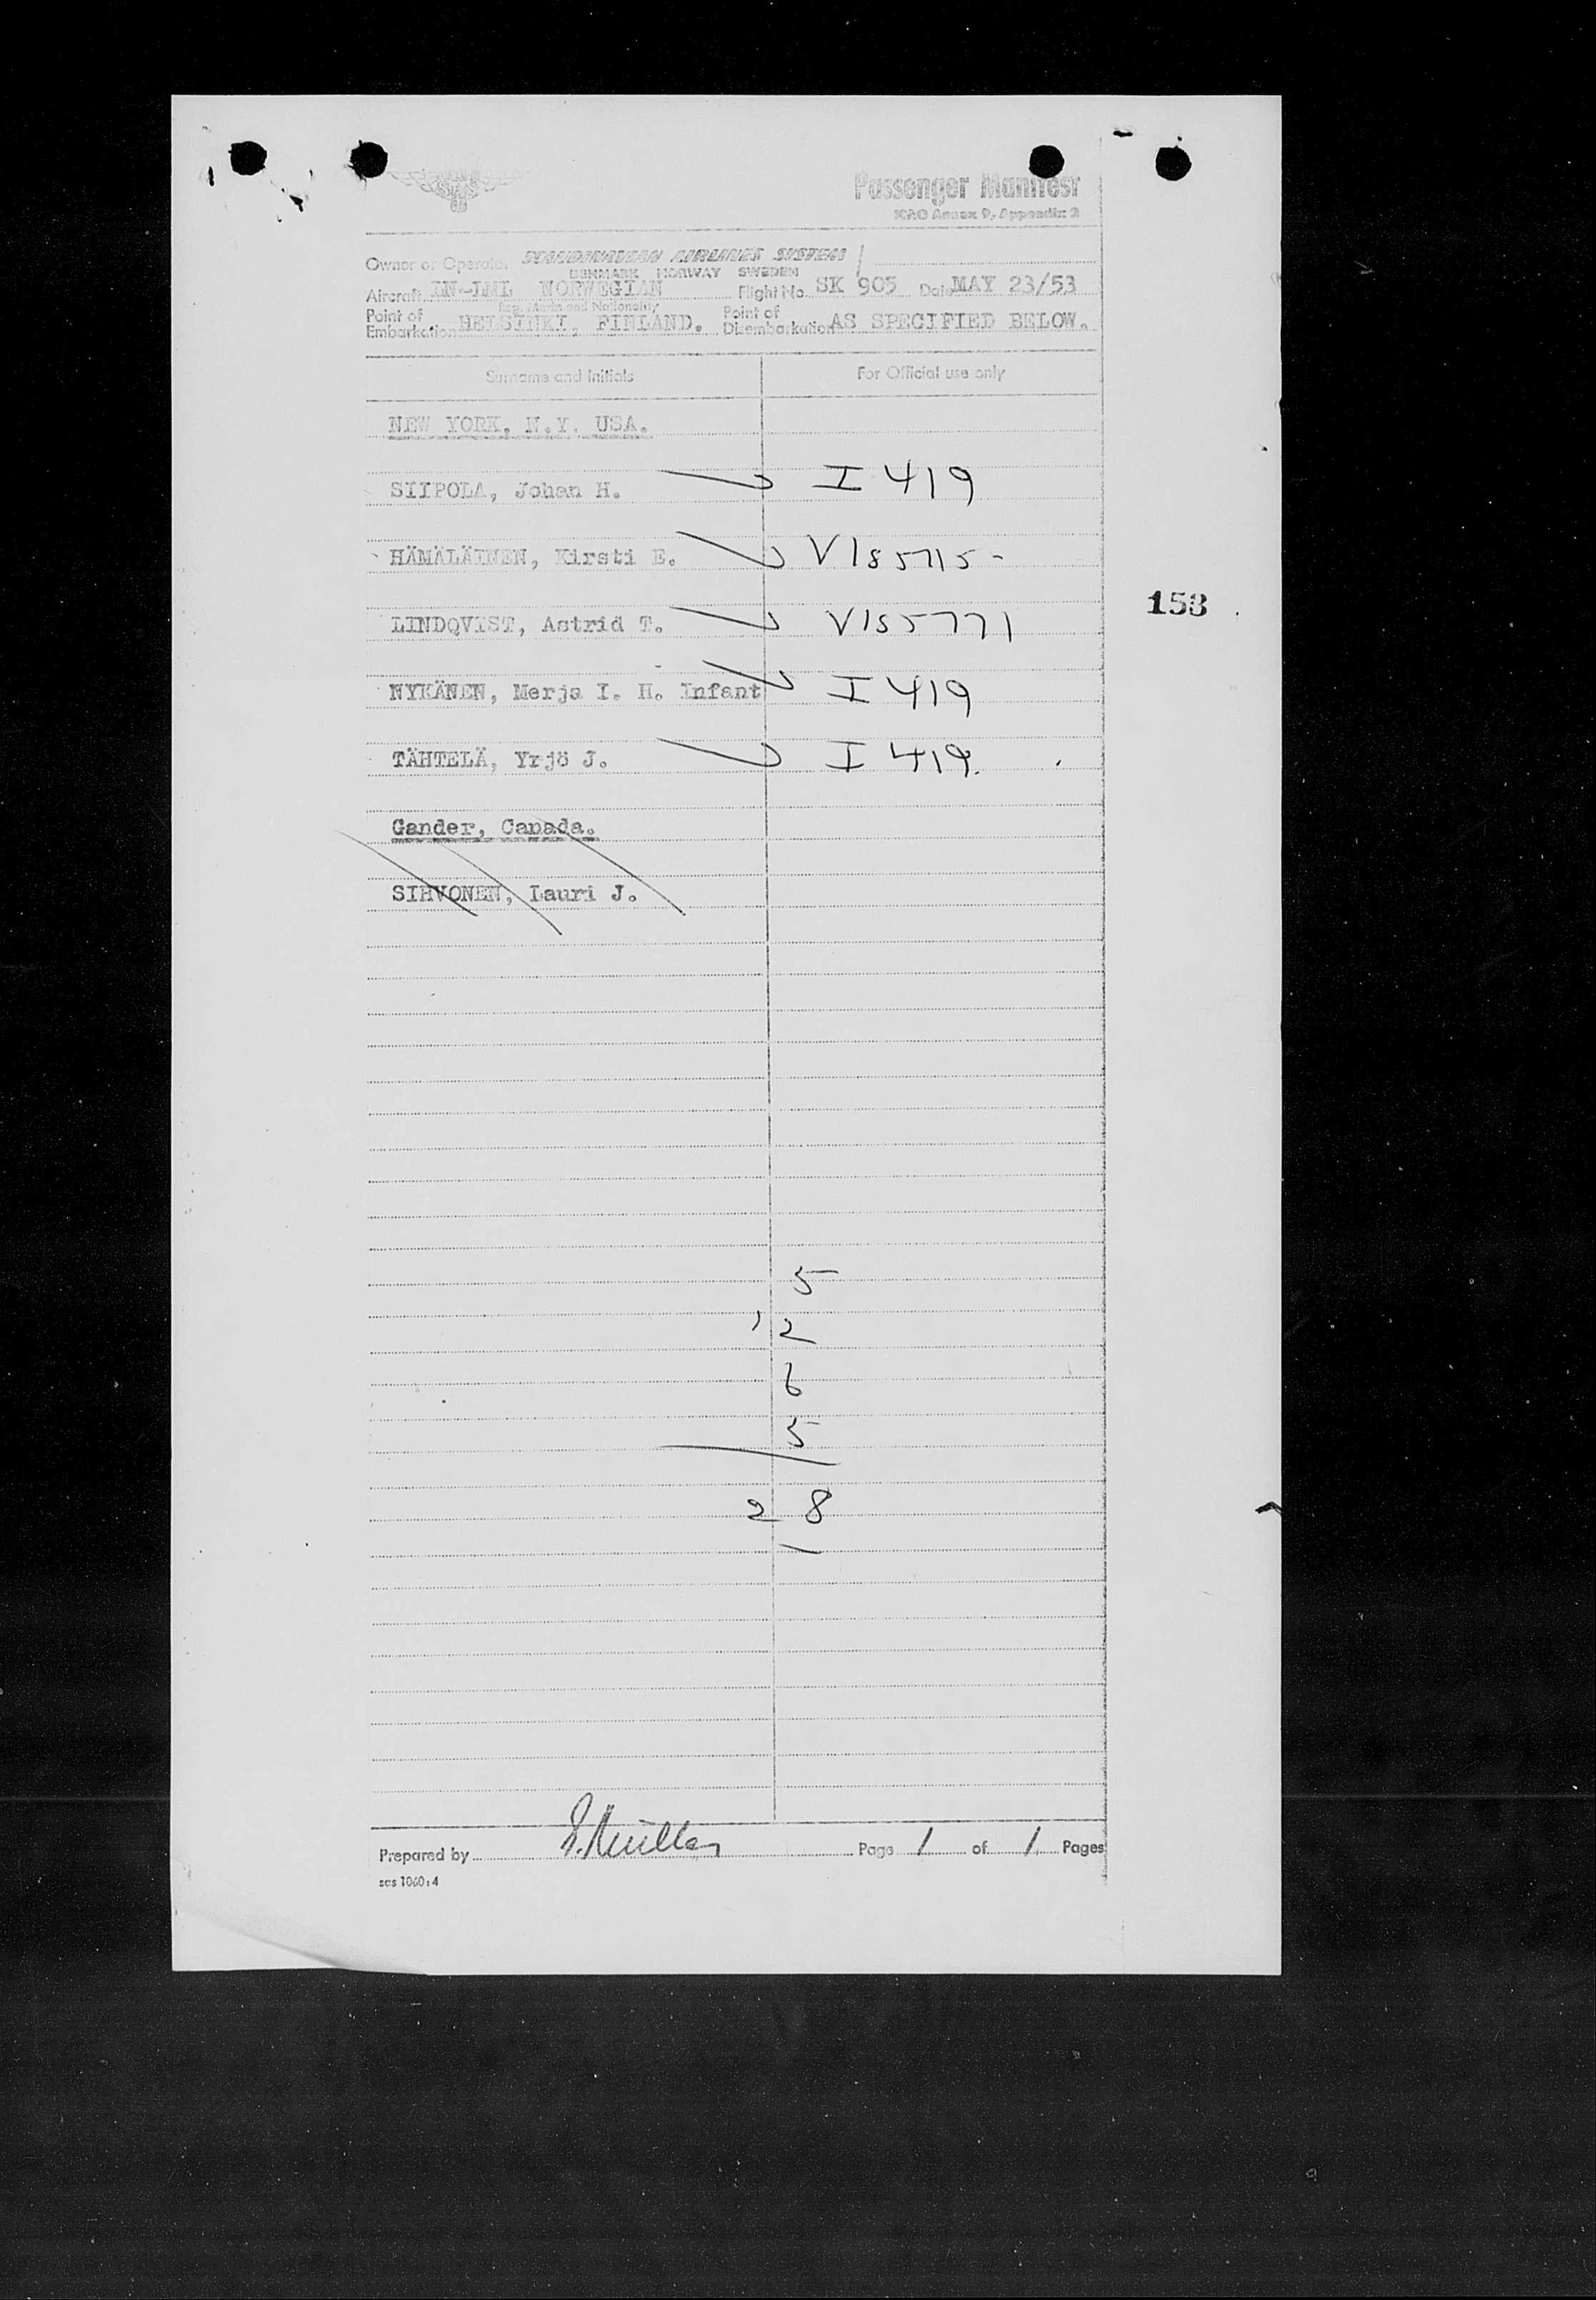 Passenger Manifest
ICAO Annex 9, Appendix 2
Owner or Operator SCANDINAVIAN AIRLINES SYSTEM
DENMARK NORWAY SWEDEN
Aircraft LN-LML NORWEGIAN Flight No. SK 905 Date MAY 23/53
Reg. Marks and Nationality
Point of Embarkation HELSINKI, FINLAND. Point of Disembarkation AS SPECIFIED BELOW.
Surname and initials For Official use only
NEW YORK, N.Y. USA.
SIIPOLA, Johan H. I 419
HÄMÄLÄINEN, Kirsti E. V185715-
153
LINDQVIST, Astrid T. V185771
NYKÄNEN, Merja I. H. Infant I 419
TÄHTELÄ, Yrjö J. I 419.
Gander, Canada.
SIHVONEN, Lauri J.
5
12
6
5
28
Prepared by Page 1 of 1 Pages
sas 1060:4